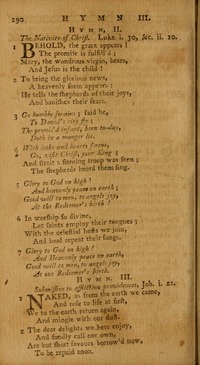 290 HYMN III.
HYMN, II.
The Nativity of Christ. Luke i. 30, &c. ii. 10.
1 BEHOLD, the grace appears!
The promise is fulfill'd;
Mary, the wondrous virgin, bears,
And Jesus is the child!
2 To bring the glorious news,
A heavenly form appears:
He tells the shepherds of their joys,
And banishes their fears.
3 Go humble swains; said he,
To David's city fly;
The promis'd infant, born to-day,
Doth in a manger lie.
4 With looks and hearts serene,
Go, visit Christ, your King;
And strait a flaming troop was seen;
The shepherds heard them sing.
5 Glory to God on high!
And heavenly peace on earth;
Good will to men, to angels joy,
At the Redeemer's birth!
6 In worship so divine,
Let saints employ their tongues;
With the celestial hosts we join,
And loud repeat their songs.
7 Glory to God on high!
And Heavenly peace on earth,
Good will to men, to angels joy,
At our Redeemer's birth!
HYMN. III.
Submission to afflictive providences, Job. i. 21.
1 NAKED, as from the earth we came,
And rose to life at first,
We to the earth return again,
And mingle with our dust.
2 The dear delights we here enjoy,
And fondly call our own,
Are but short favours borrow'd now,
To be repaid anon.